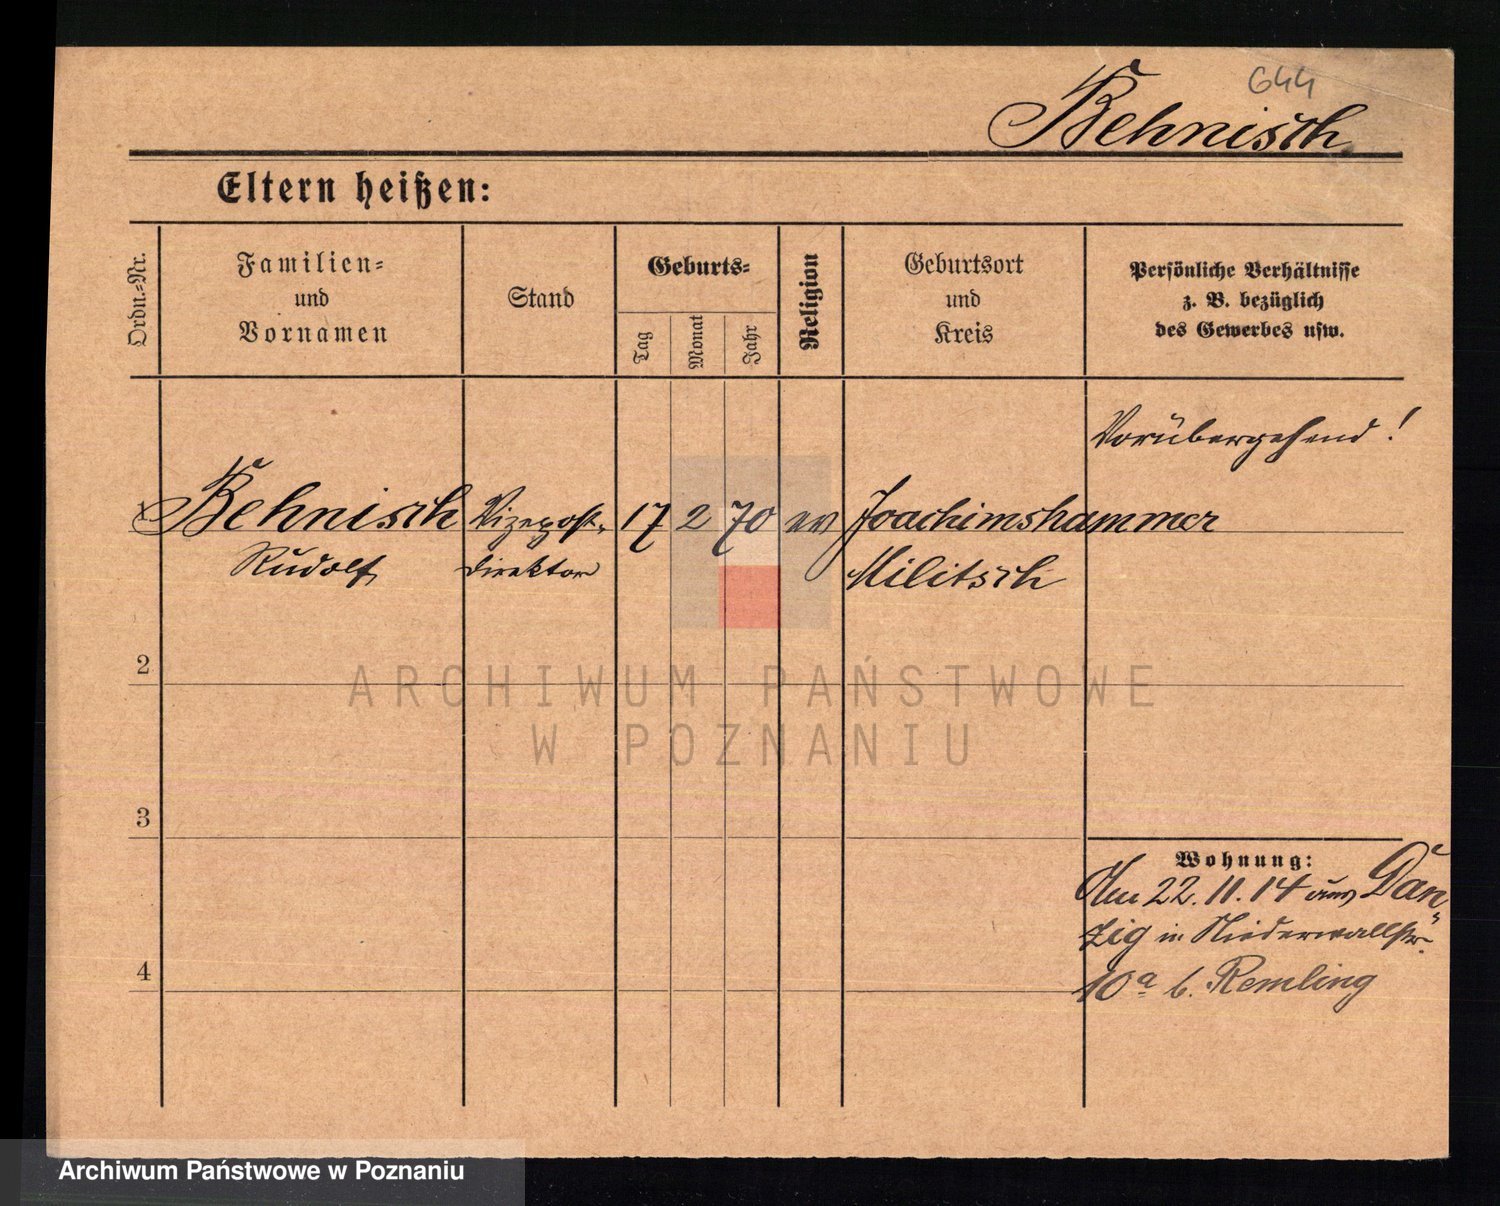 644
Behnisch
Eltern heißen:
Ordn.-Nr.
Familien-
und
Vornamen
Stand
Geburts-
Tag
Monat
Jahr
Religion
Geburtsort
und
Kreis
Persönliche Verhältnisse
z. B. bezüglich
des Gewerbes usw.
Vorübergehend!
1 Behnisch Vizepost- 17 2 70 ev Joachimshammer
Rudolf direktor Militsch
2
ARCHIWUM PAŃSTWOWE
W POZNANIU
3
Wohnung:
Am 22. 11. 14 aus Dan
zig in Niederwallstr.
4
10a b. Remling
Archiwum Państwowe w Poznaniu